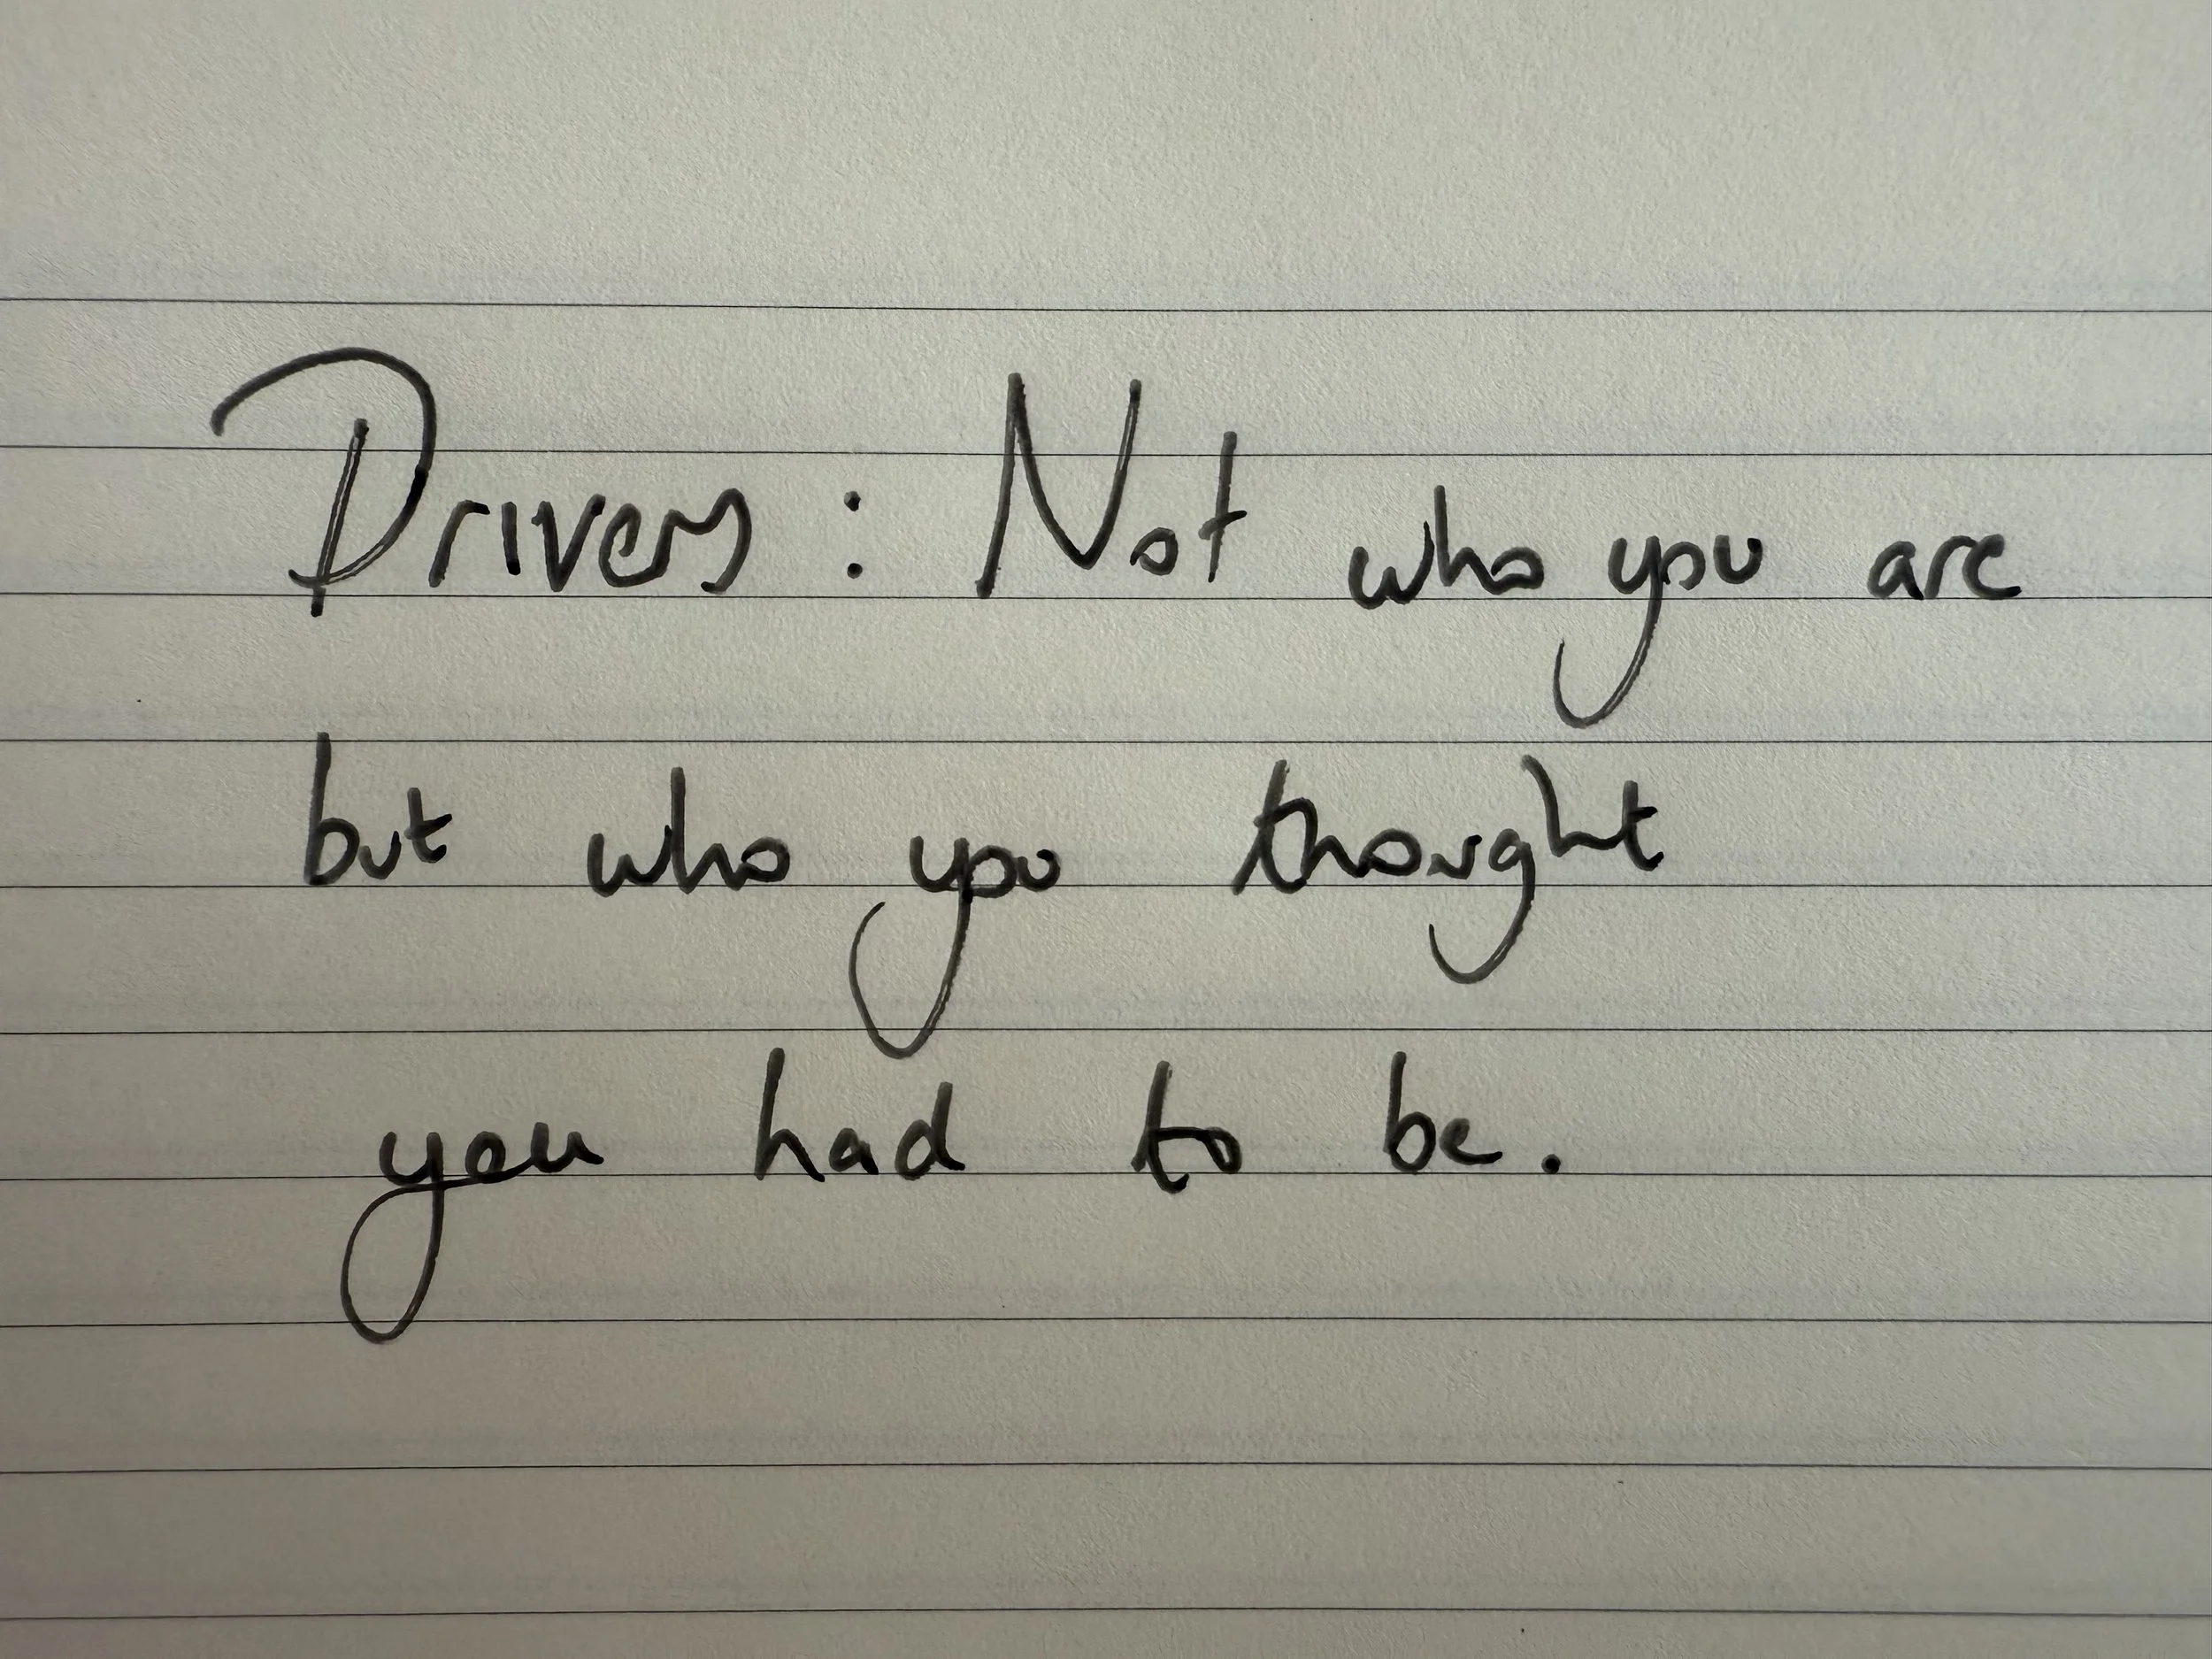 Drivers : Not who you are
but who you thought
you had to be.